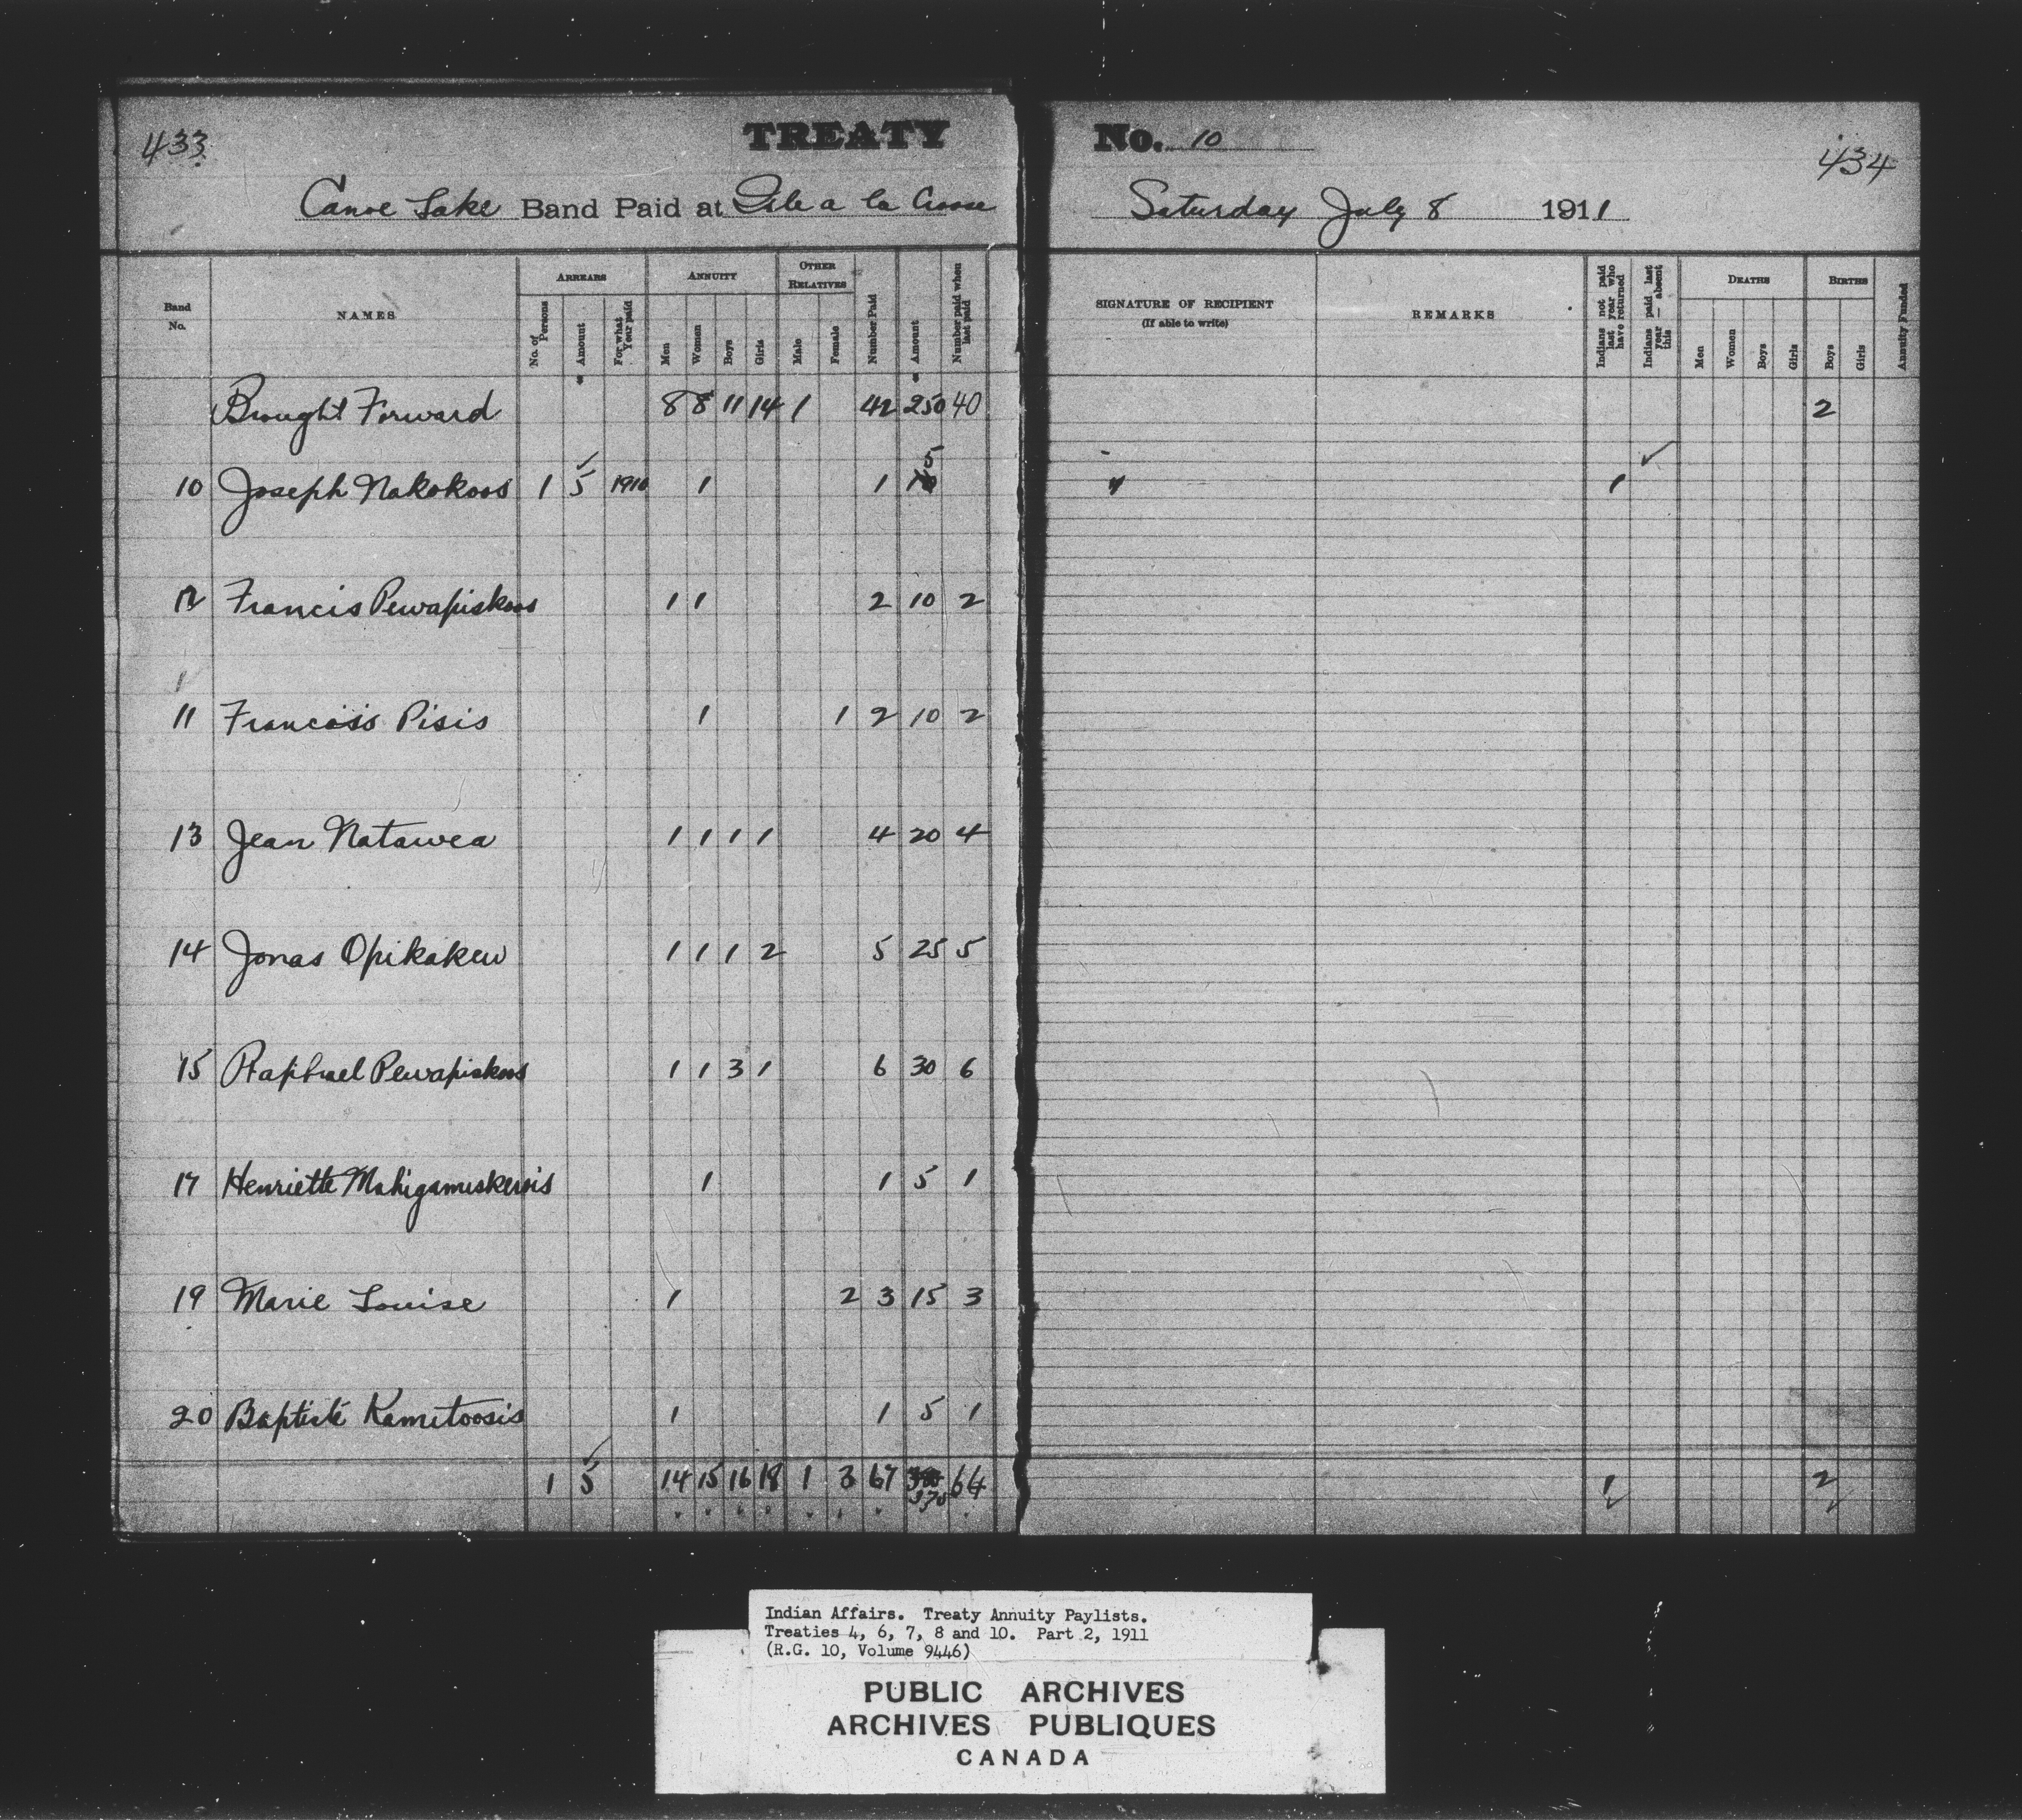 433
TREATY
No. 10
434
Canoe Lake Band Paid at Isle a la Crosse
Saturday July 8 1911
Band No. NAMES ARREARS ANNUITY OTHER RELATIVES Number Paid Amount Number paid when last paid
No. of Persons Amount For what Year paid Men Women Boys Girls Male Female
SIGNATURE OF RECIPIENT (If able to write) REMARKS Indians not paid last year who have returned Indians paid last year — absent this DEATHS BIRTHS Annuity Funded
Men Women Boys Girls Boys Girls
Brought Forward 8 8 11 14 1 42 250 40 2
10 Joseph Nakokoos 1 5 1910 1 1 5 1
12 Francis Pewapiskoos 1 1 2 10 2
11 Francois Pisis 1 1 2 10 2
13 Jean Natawea 1 1 1 1 4 20 4
14 Jonas Opikokew 1 1 1 2 5 25 5
15 Raphael Pewapiskoos 1 1 3 1 6 30 6
17 Henriette Mahigamuskewis 1 1 5 1
19 Marie Louise 1 2 3 15 3
20 Baptiste Kametoosis 1 1 5 1
1 5 14 15 16 18 1 3 67 375 64 1 2
Indian Affairs. Treaty Annuity Paylists.
Treaties 4, 6, 7, 8 and 10. Part 2, 1911
(R.G. 10, Volume 9446)
PUBLIC ARCHIVES
ARCHIVES PUBLIQUES
CANADA